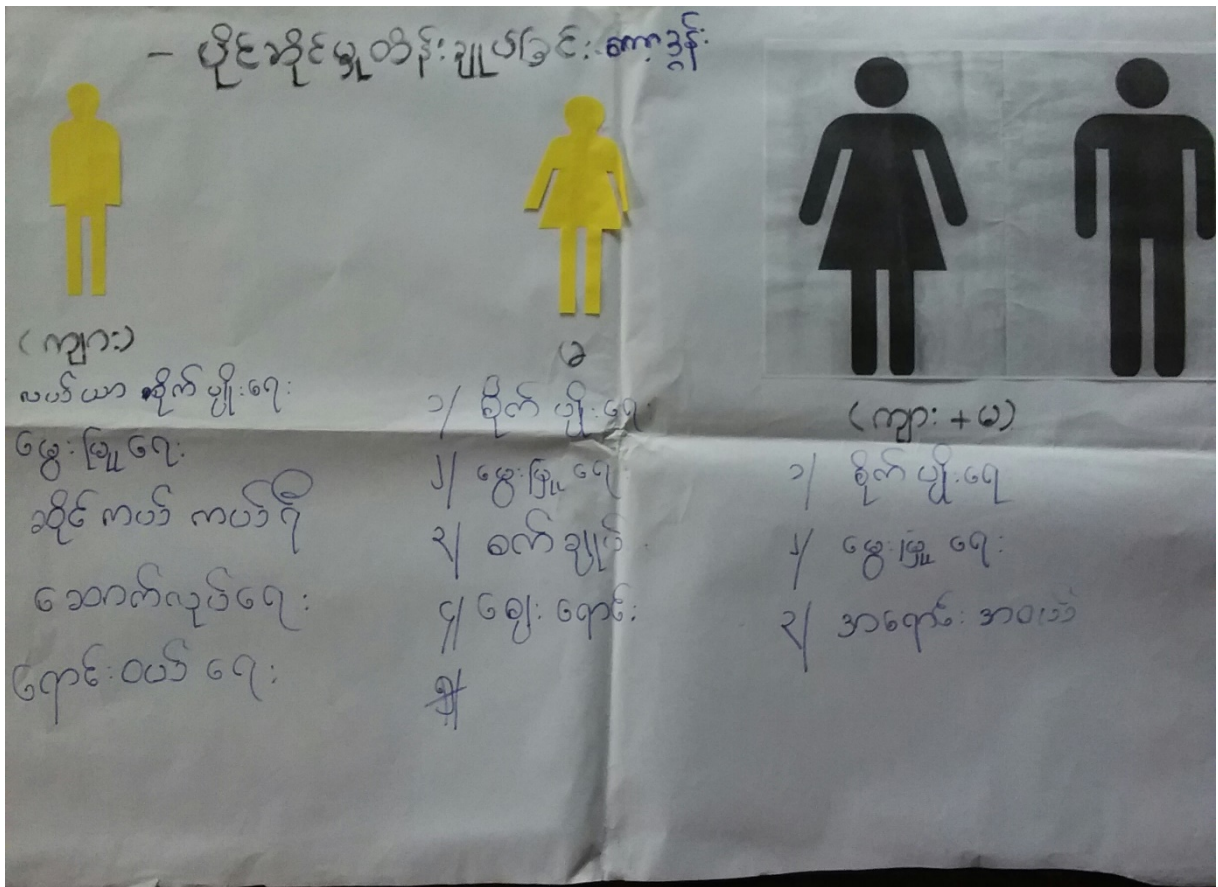 - ပိုင်ဆိုင်မှုထိန်းချုပ်ခြင်း ကော့ဒွန်း
(ကျား)
လယ်ယာ စိုက်ပျိုးရေး
မွေးမြူရေး
ဆိုင်ကယ် ကယ်ရီ
ဆောက်လုပ်ရေး
ရောင်းဝယ်ရေး
မ
၁/ စိုက်ပျိုးရေး
၂/ မွေးမြူရေး
၃/ စက်ချုပ်
၄/ ဈေးရောင်း
၅/
(ကျား + မ)
၁/ စိုက်ပျိုးရေ
၂/ မွေးမြူရေး
၃/ အရောင်းအဝယ်